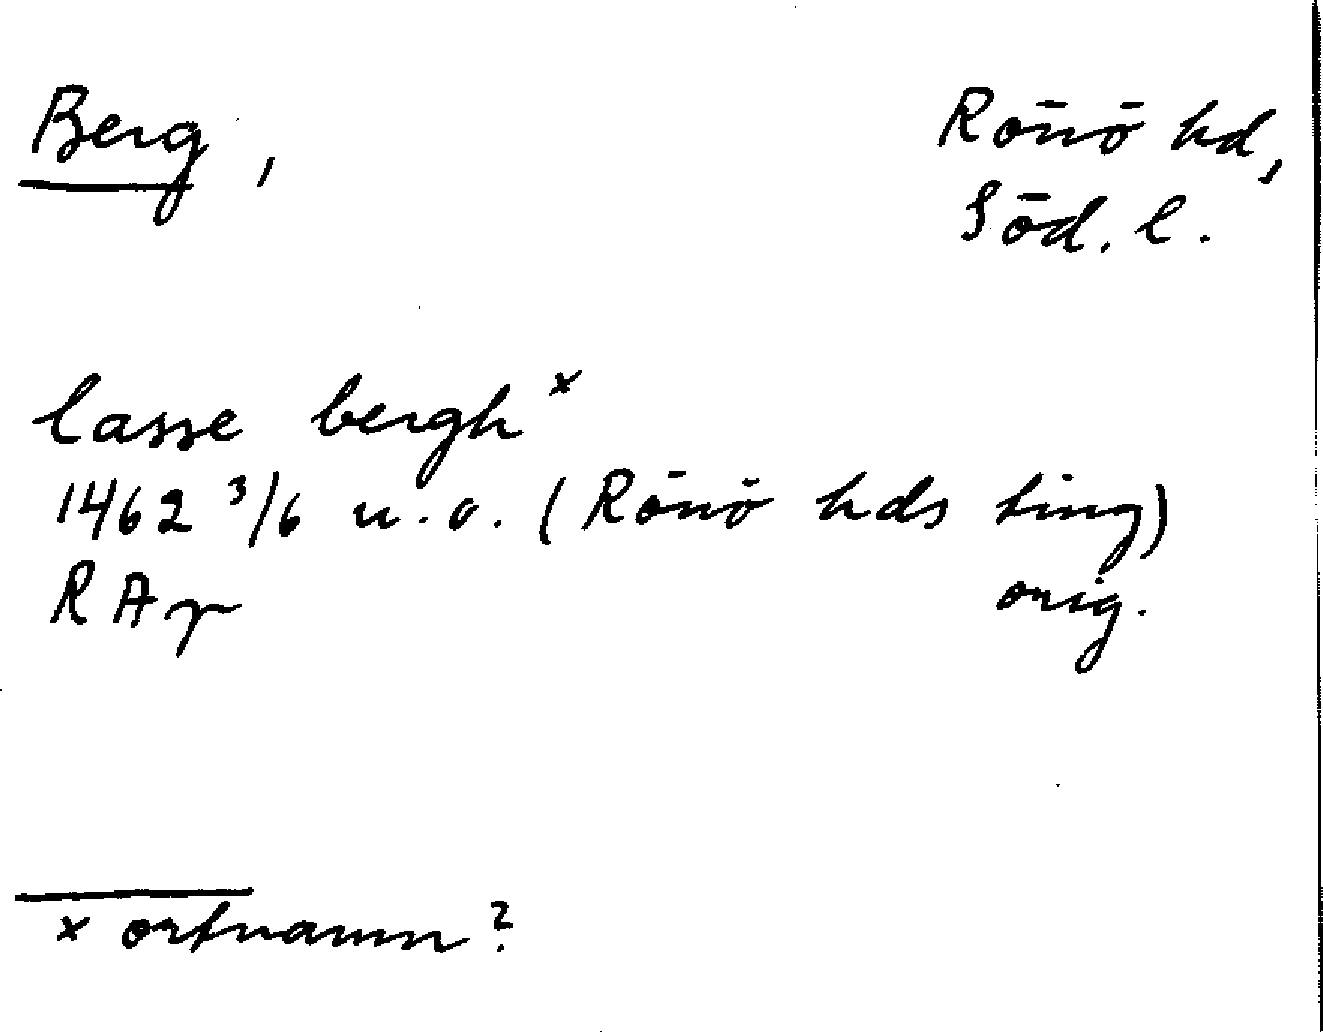 Berg, Rönö hd,
Söd. l.
lasse bergh x
1462 3/6 u.o. (Rönö hds ting)
RAp orig.
x ortnamn?